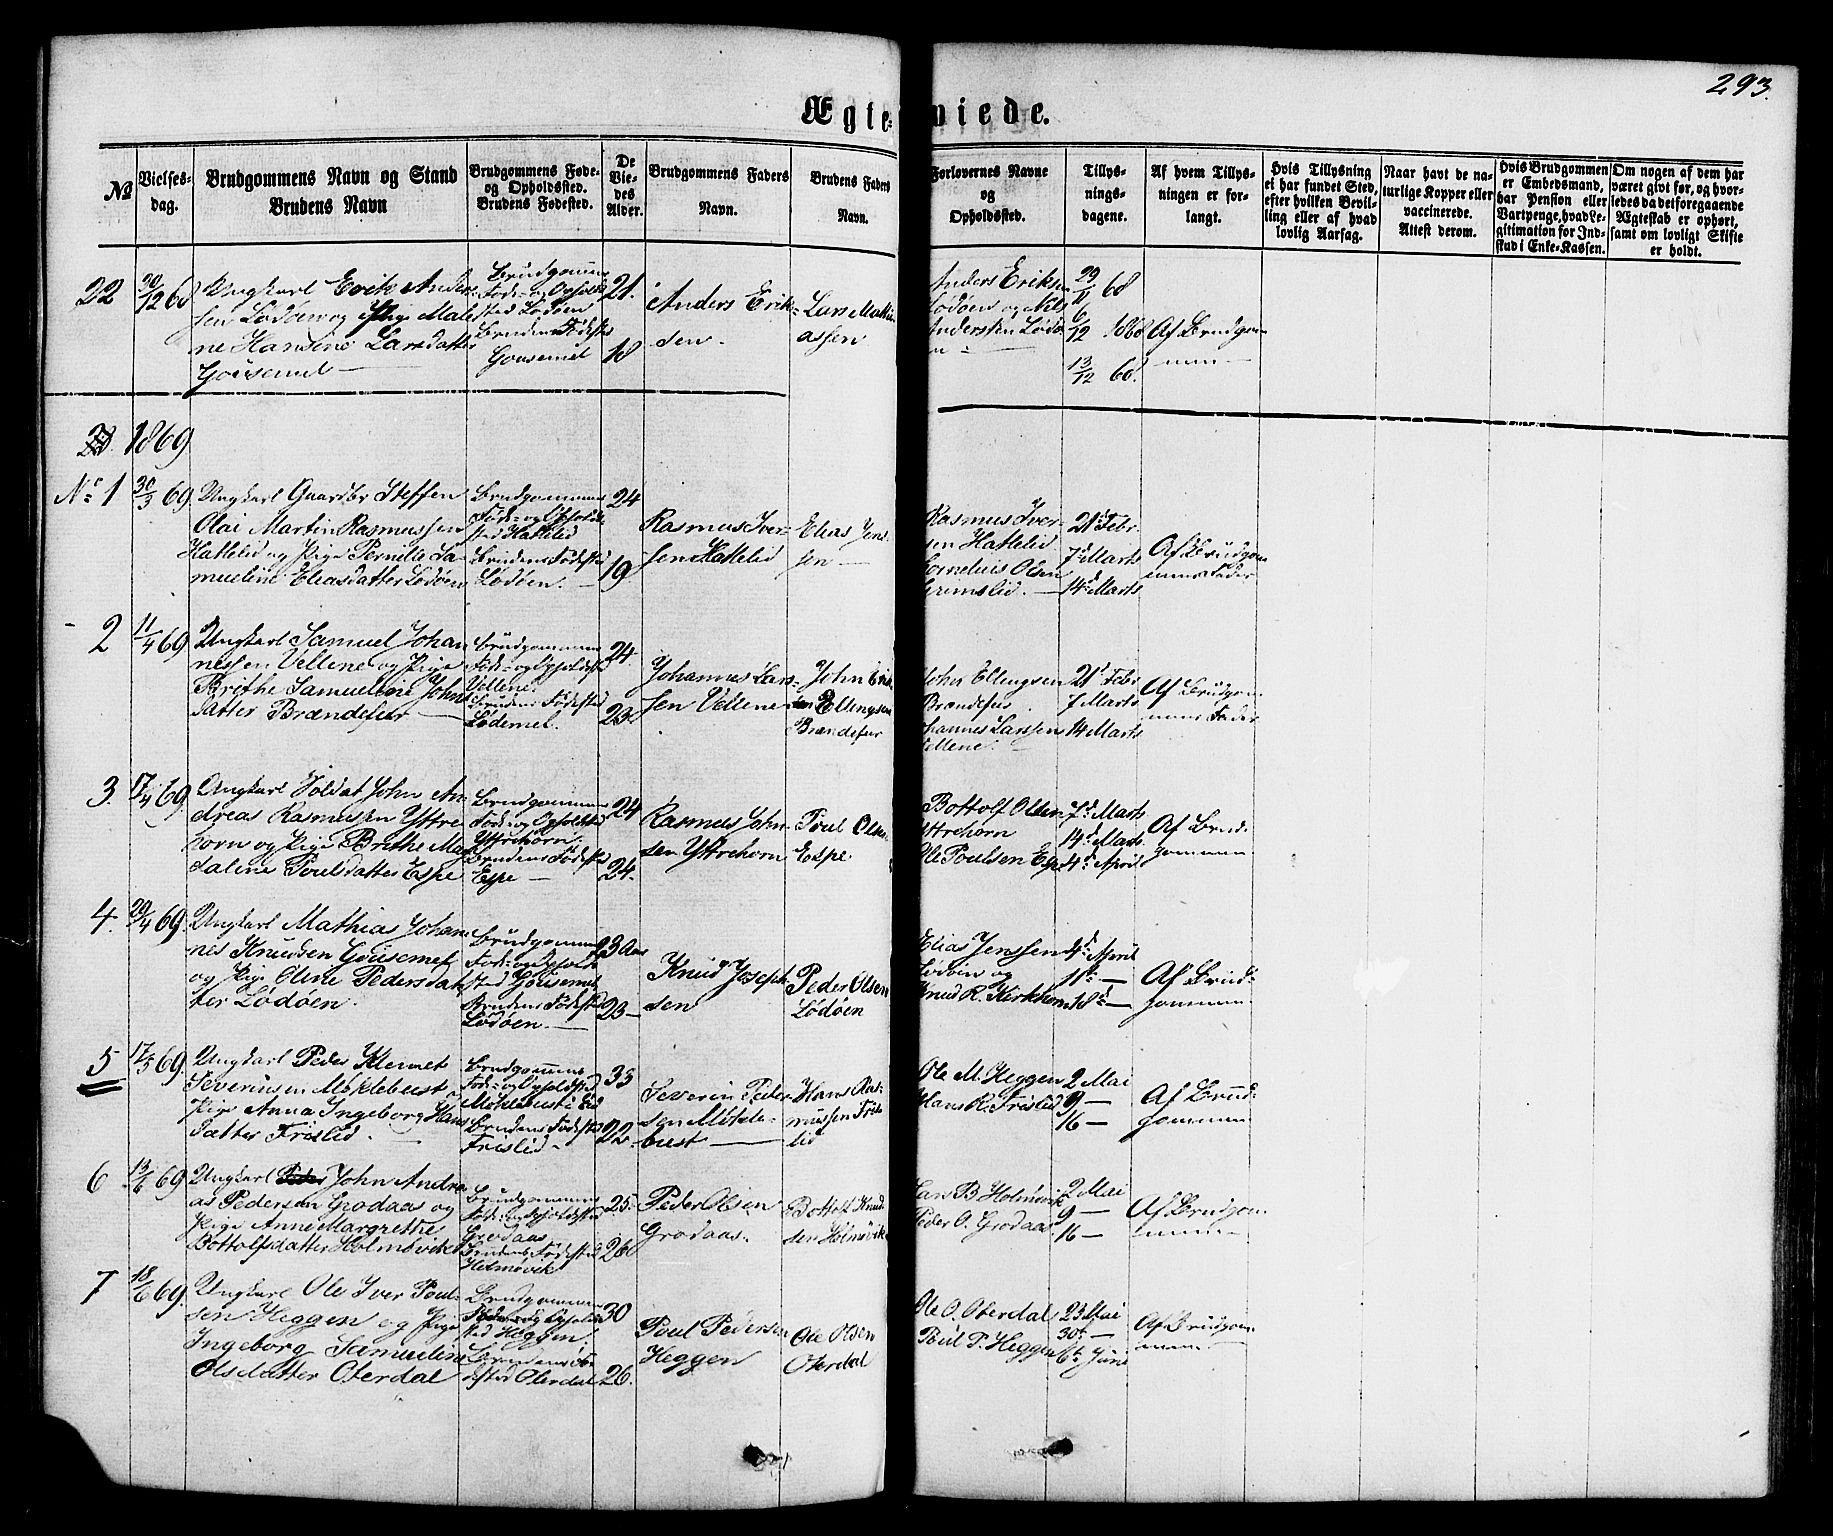 293.
Ægte- viede.
№
Vielses-
dag.
Brudgommens Navn og Stand
Brudens Navn
Brudgommens Føde-
og Opholdssted.
Brudens Fødested.
De
Vie-
des
Alder.
Brudgommens Faders
Navn.
Brudens Faders
Navn.
Forlovernes Navne
og
Opholdssted.
Tillys-
nings-
dagene.
Af hvem Tillys-
ningen er for-
langt.
Hvis Tillysning
ei har fundet Sted,
efter hvilken Bevil-
ling eller af hvad
lovlig Aarsag.
Naar havt de na-
turlige Kopper eller
vaccinerede.
Attest derom.
Hvis Brudgommen
er Embedsmand,
har Pension eller
Vartpenge, hvad Le-
gitimation for Ind-
skud i Enke-Kassen.
Om nogen af dem har
været givt før, og hvor-
ledes da det foregaaende
Ægteskab er ophørt,
samt om lovligt Skifte
er holdt.
22
30/12 68
Ungkarl Erik Ander-
sen Lødøen og Pige Male
ne Hansine Larsdatter
Gousemel
Brudgommens
Føde- og Opholds-
sted Lødøen
Brudens Fødested
Gousemel
21.
18
Anders Erik-
sen.
Lars Mathi
assen
Anders Eriks
Lødøen og Nils
Anderssen Lødø
n
29/11 68
6/12 1868
13/12 68.
Af Brudgom
men
1869
No 1
30/3 69
Ungkarl Guardbr Steffen
Olai Martin Rasmussen
Hattelid og Pige Pernelie Sa-
mueline Eliasdatter Lødøen
Brudgommens
Føde- og Opholds-
sted Hattelid
Brudens Fødested
Lødøen.
24
19
Rasmus Iver-
sen Hattelid
Elias Jens
sen
Rasmus Iver-
sen Hattelid
Cornelius Olsen
Gremslid.
21d Febr
7d Marts
14d Marts
Af Brudgom
mens Fader
2
11/4 69
Ungkarl Samuel Johan
nessen Vellene og Pige
Brithe Samueline Johns
datter Brændefur
Brudgommens
Føde- og Opholdssted
Vellene.
Brudens Fødested
Lødemel.
24.
23
Johannes Lars-
sen Vellene
John Erik
sen Ellingsen
Brændefur
John Ellingsen
Brændefur
Johannes Larssen
Vellene.
21d Febr
7 Marts
14 Marts
Af Brudgom
mens Fader
3.
17/4 69
Ungkarl Soldat John An-
dreas Rasmussen Yttre
horn og Pige Brithe Mag
dalene Poulsdatter Espe
Brudgommens
Føde- og Opholdssted
Yttrehorn.
Brudens Fødested
Espe
24
24.
Rasmus John-
sen Yttrehorn
Poul Olsen
Espe
Bottolf Olsen
Yttrehorn
Ole Poulsen Espe
7d Marts
14d Marts
4d April
Af Brud-
gommen
4.
29/4 69.
Ungkarl Mathias Johan
nes Knudsen Gousemel
og Pige Oline Pedersdat
ter Lødøen.
Brudgommens
Føde- og Opholds
sted Gousemel
Brudens Fødested
Lødøen.
23 Aar
23
Knud Joseph
sen
Peder Olsen
Lødøen
Elias Jenssen
Lødøen og
Knud R. Kirkhorn
4d April
11te
18d
Af Brud-
gommen
5
17/5 69
Ungkarl Peder Klemet
Severinsen Møklebust og
Pige Anna Ingeborg Hans
datter Frislid.
Brudgommens
Føde- og Opholdssted
Møklebust i Eid
Brudens Fødested
Frislid
33
22
Severin Peder
sen Møkle-
bust
Hans Ras-
mussen Fris
lid
Ole M. Heggen
Hans R. Frislid
2 Mai
9
16
Af Brud-
gommen
6
13/6 69
Ungkarl John Andre
as Pedersen Grodaas og
Pige Anne Margrethe
Bottolfsdatter Holmøvik
Brudgommens
Føde- og Opholdssted
Grodaas
Brudens Fødested
Holmøvik
25.
26
Peder Olsen
Grodaas.
Bottolf Knud
sen Holmøvik
Lars B Holmøvik
Peder O. Grodaas
2 Mai
9
16
Af Brudgom
men
7
18/6 69.
Ungkarl Ole Iver Poul-
sen Heggen og Pige
Ingeborg Samueline
Olsdatter Oterdal
Brudgommens
Føde- og Opholds
sted Heggen.
Brudens Fø-
dested Oterdal
30
26.
Poul Pedersen
Heggen
Ole Olsen
Oterdal
Ole O. Oterdal
Poul P. Heggen
23 Mai
30te
6te Juni
Af Brudgom
men